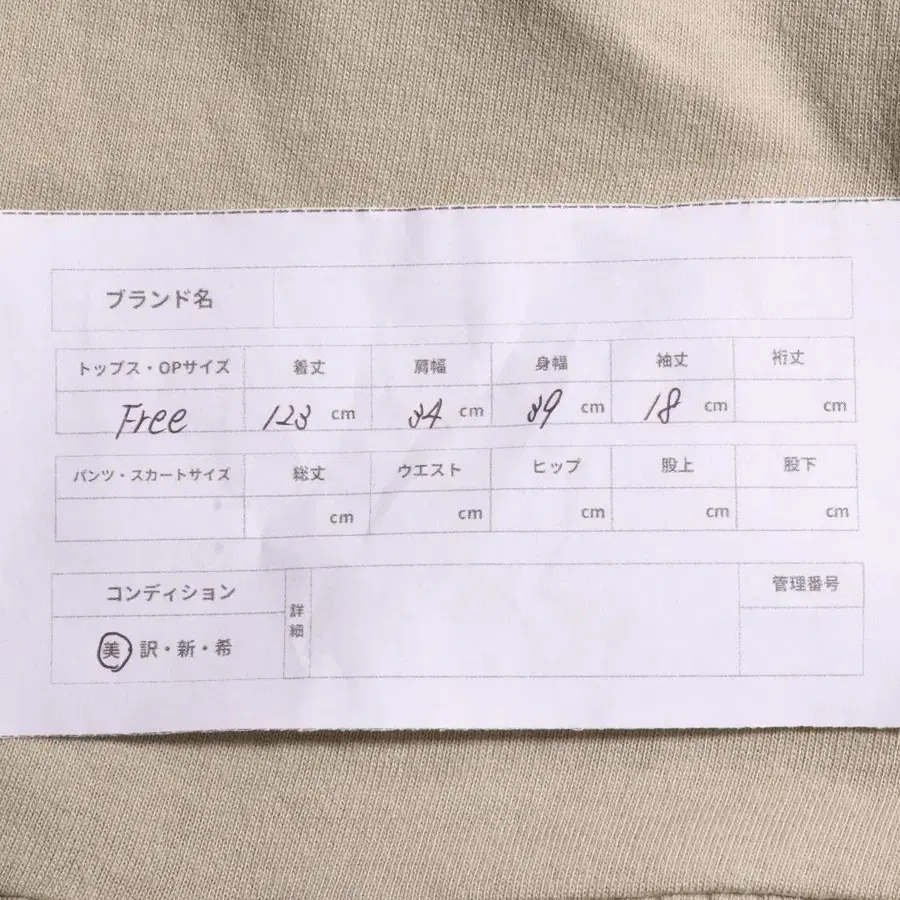 ブランド名
トップス・OPサイズ 着丈 肩幅 身幅 袖丈 裄丈
Free 123 cm 34 cm 39 cm 18 cm cm
パンツ・スカートサイズ 総丈 ウエスト ヒップ 股上 股下
cm cm cm cm cm
コンディション 詳細 管理番号
美・訳・新・希